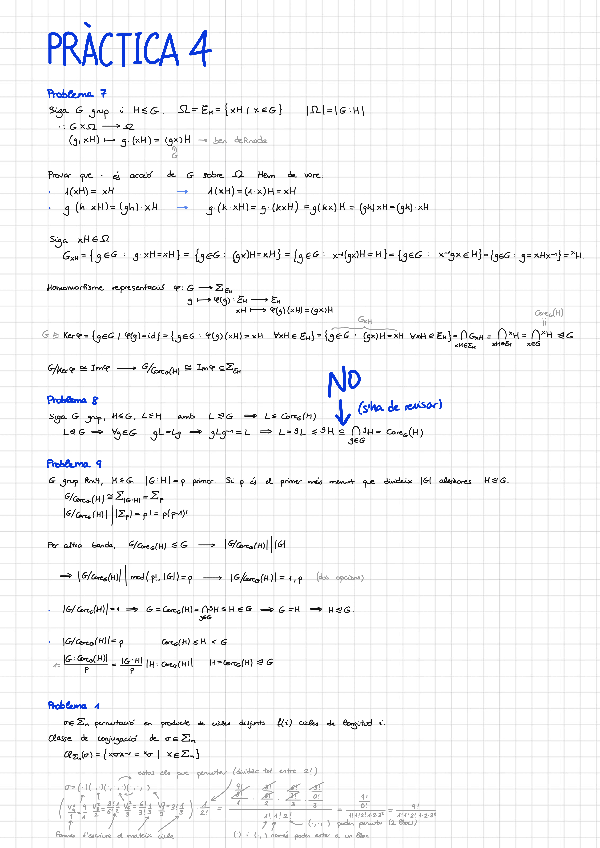 PRÀCTICA 4
Problema 7
Siga G grup i H ≤ G. Ω = E_H = {xH / x ∈ G} |Ω| = |G:H|
· : G × Ω ⟶ Ω
(g, xH) ⟼ g·(xH) = (gx)H → ben definida
G
Provar que · és acció de G sobre Ω Hem de vore:
· 1(xH) = xH → 1(xH) = (1·x)H = xH
· g(h·xH) = (gh)·xH → g·(k·xH) = g·(kxH) = g(kx)H = (gk)xH = (gk)·xH
Siga xH ∈ Ω
G_xH = {g ∈ G : g·xH = xH} = {g ∈ G : (gx)H = xH} = {g ∈ G : x⁻¹(gx)H = H} = {g ∈ G : x⁻¹gx ∈ H} = {g ∈ G : g = xHx⁻¹} = ˣH.
Homomorfisme representació φ: G ⟶ Σ_EH
g ⟼ φ(g): E_H ⟶ E_H
xH ⟼ φ(g)(xH) = (gx)H
G_xH Core_G(H)
G ⊵ Kerφ = {g ∈ G / φ(g) = id} = {g ∈ G : φ(g)(xH) = xH ∀xH ∈ E_H} = {g ∈ G : (gx)H = xH ∀xH ∈ E_H} = ⋂_{xH∈E_H} G_xH = ⋂_{xH∈E_H} ˣH = ⋂_{x∈G} ˣH ⊴ G
G/Kerφ ≅ Imφ ⟶ G/Core_G(H) ≅ Imφ ≤ Σ_EH
NO
Problema 8
(s'ha de revisar)
Siga G grup, H ≤ G, L ≤ H amb L ⊴ G → L ≤ Core_G(H)
L ⊴ G ⟹ ∀g ∈ G gL = Lg ⟹ gLg⁻¹ = L ⟹ L = ᵍL ≤ ᵍH ⊆ ⋂_{g∈G} ᵍH = Core_G(H)
Problema 9
G grup finit, H ≤ G |G:H| = p primer. Si p és el primer més menut que divideix |G| aleshores H ⊴ G.
G/Core_G(H) ≅ Σ_|G:H| = Σ_p
|G/Core_G(H)| | |Σ_p| = p! = p(p-1)!
Per altra banda, G/Core_G(H) ≤ G ⟶ |G/Core_G(H)| | |G|
⟹ |G/Core_G(H)| | mcd(p!, |G|) = p ⟶ |G/Core_G(H)| = 1, p (dos opcions)
· |G/Core_G(H)| = 1 ⟹ G = Core_G(H) = ⋂_{g∈G} ᵍH ≤ H ≤ G ⟹ G = H ⟶ H ⊴ G.
· |G/Core_G(H)| = p Core_G(H) ≤ H < G
1 = |G:Core_G(H)|/p = |G:H|/p |H:Core_G(H)| H = Core_G(H) ⊴ G
Problema 1
σ ∈ Σ_n permutació en producte de cicles disjunts l(i) cicles de longitud i.
Classe de conjugació de σ ∈ Σ_n
Cl_Σn(σ) = {xσx⁻¹ = ˣσ | x ∈ Σ_n}
estos els puc permutar (dividir tot entre 2!)
σ = (·)(·, ·)(·, ·, ·)(·, ·, ·)
Formes d'escriure el mateix cicle
(·, ·) puden permutar (2 lloc)